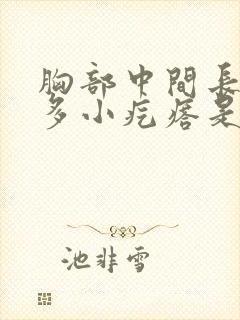 胸部中間長
多小疙瘩是
池非雪